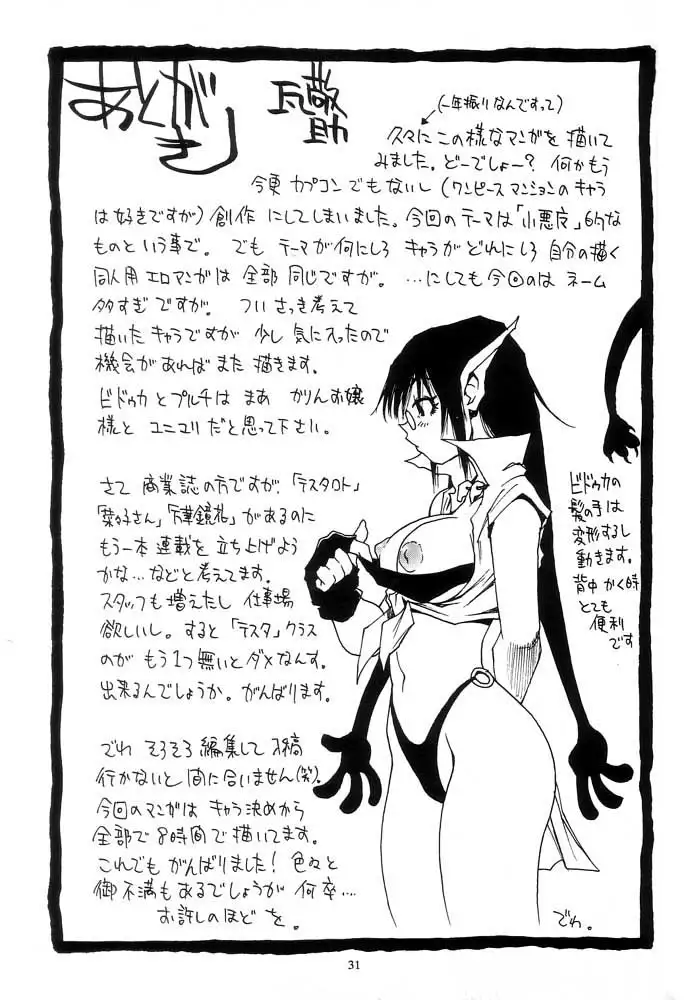 あとがき
瓦敬助
(一年振りなんですって)
久々にこの様なマンガを描いて
みました。どーでしょー? 何かもう
今更カプコンでもないし(ワンピースマンションのキャラ
は好きですが)創作にしてしまいました。今回のテーマは「小悪魔」的な
ものという事で。でもテーマが何にしろキャラがどれにしろ自分の描く
同人用エロマンガは全部同じですが。…にしても今回のはネーム
多すぎですが。ついさっき考えて
描いたキャラですが少し気に入ったので
機会があればまた描きます。
ビドゥカとプルチはまあかりんお嬢
様とユニユリだと思って下さい。
さて商業誌の方ですが、「テスタロト」
「菜々子さん」「万華鏡花」があるのに
もう一本連載を立ち上げよう
かな…などと考えてます。
スタッフも増えたし仕事場
欲しいし。すると「テスタ」クラス
のがもう1つ無いとダメなんす。
出来るんでしょうか。がんばります。
でわそろそろ編集して入稿
行かないと間に合いません(笑)。
今回のマンガはキャラ決めから
全部で8時間で描いてます。
これでもがんばりました!色々と
御不満もあるでしょうが何卒…
お許しのほどを。
ビドゥカの
髪の手は
変形するし
動きます。
背中かく時
とても
便利
です
でわ。
31